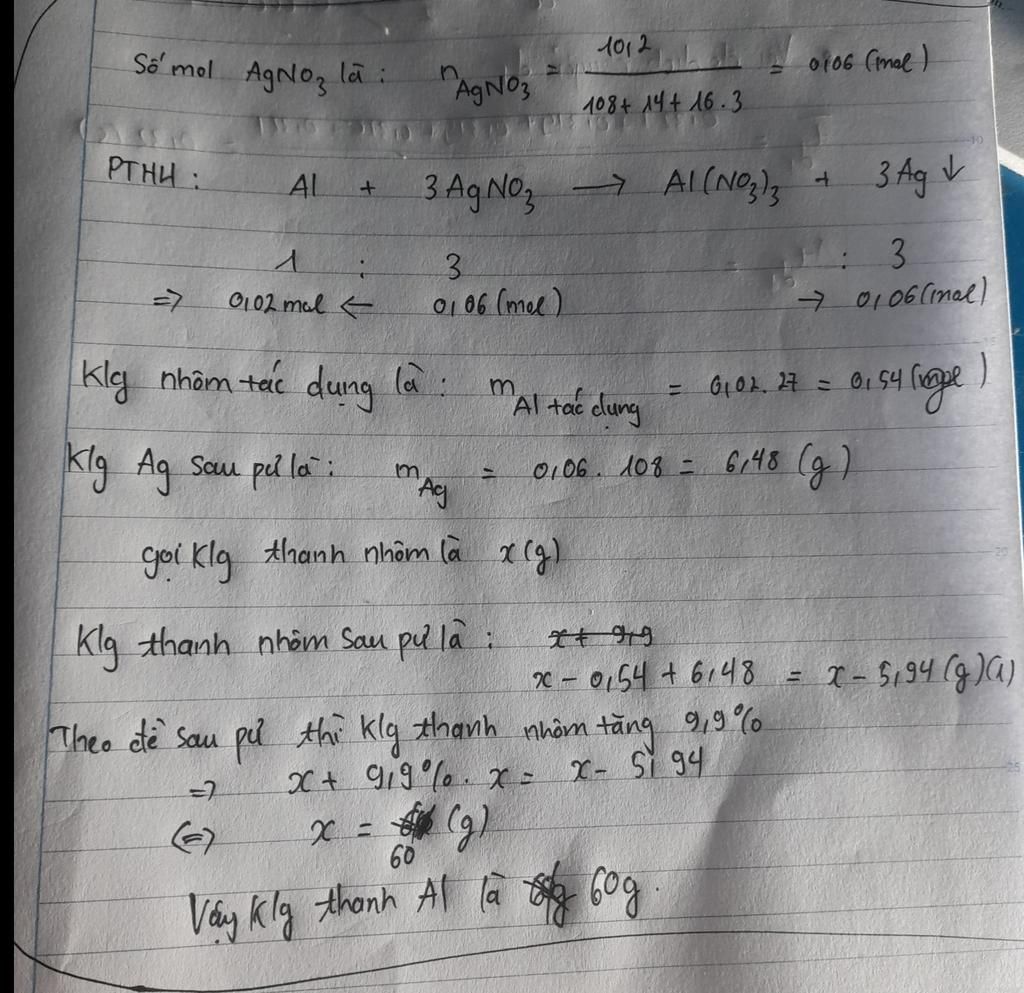 Số mol AgNO3 là : nAgNO3 = 10,2 / 108 + 14 + 16 . 3 = 0,06 (mol)
PTHH : Al + 3 AgNO3 → Al(NO3)3 + 3 Ag ↓
1 : 3 : 3
=> 0,02 mol ← 0,06 (mol) → 0,06 (mol)
Klg nhôm tác dụng là : m Al tác dụng = 0,02 . 27 = 0,54 ( )
Klg Ag sau pứ là : mAg = 0,06 . 108 = 6,48 (g)
gọi Klg thanh nhôm là x (g)
Klg thanh nhôm sau pứ là : x + 9,9
x - 0,54 + 6,48 = x - 5,94 (g) (1)
Theo đề sau pứ thì Klg thanh nhôm tăng 9,9%
=> x + 9,9% . x = x - 5,94
<=> x = 60 (g)
Vậy Klg thanh Al là 60g .